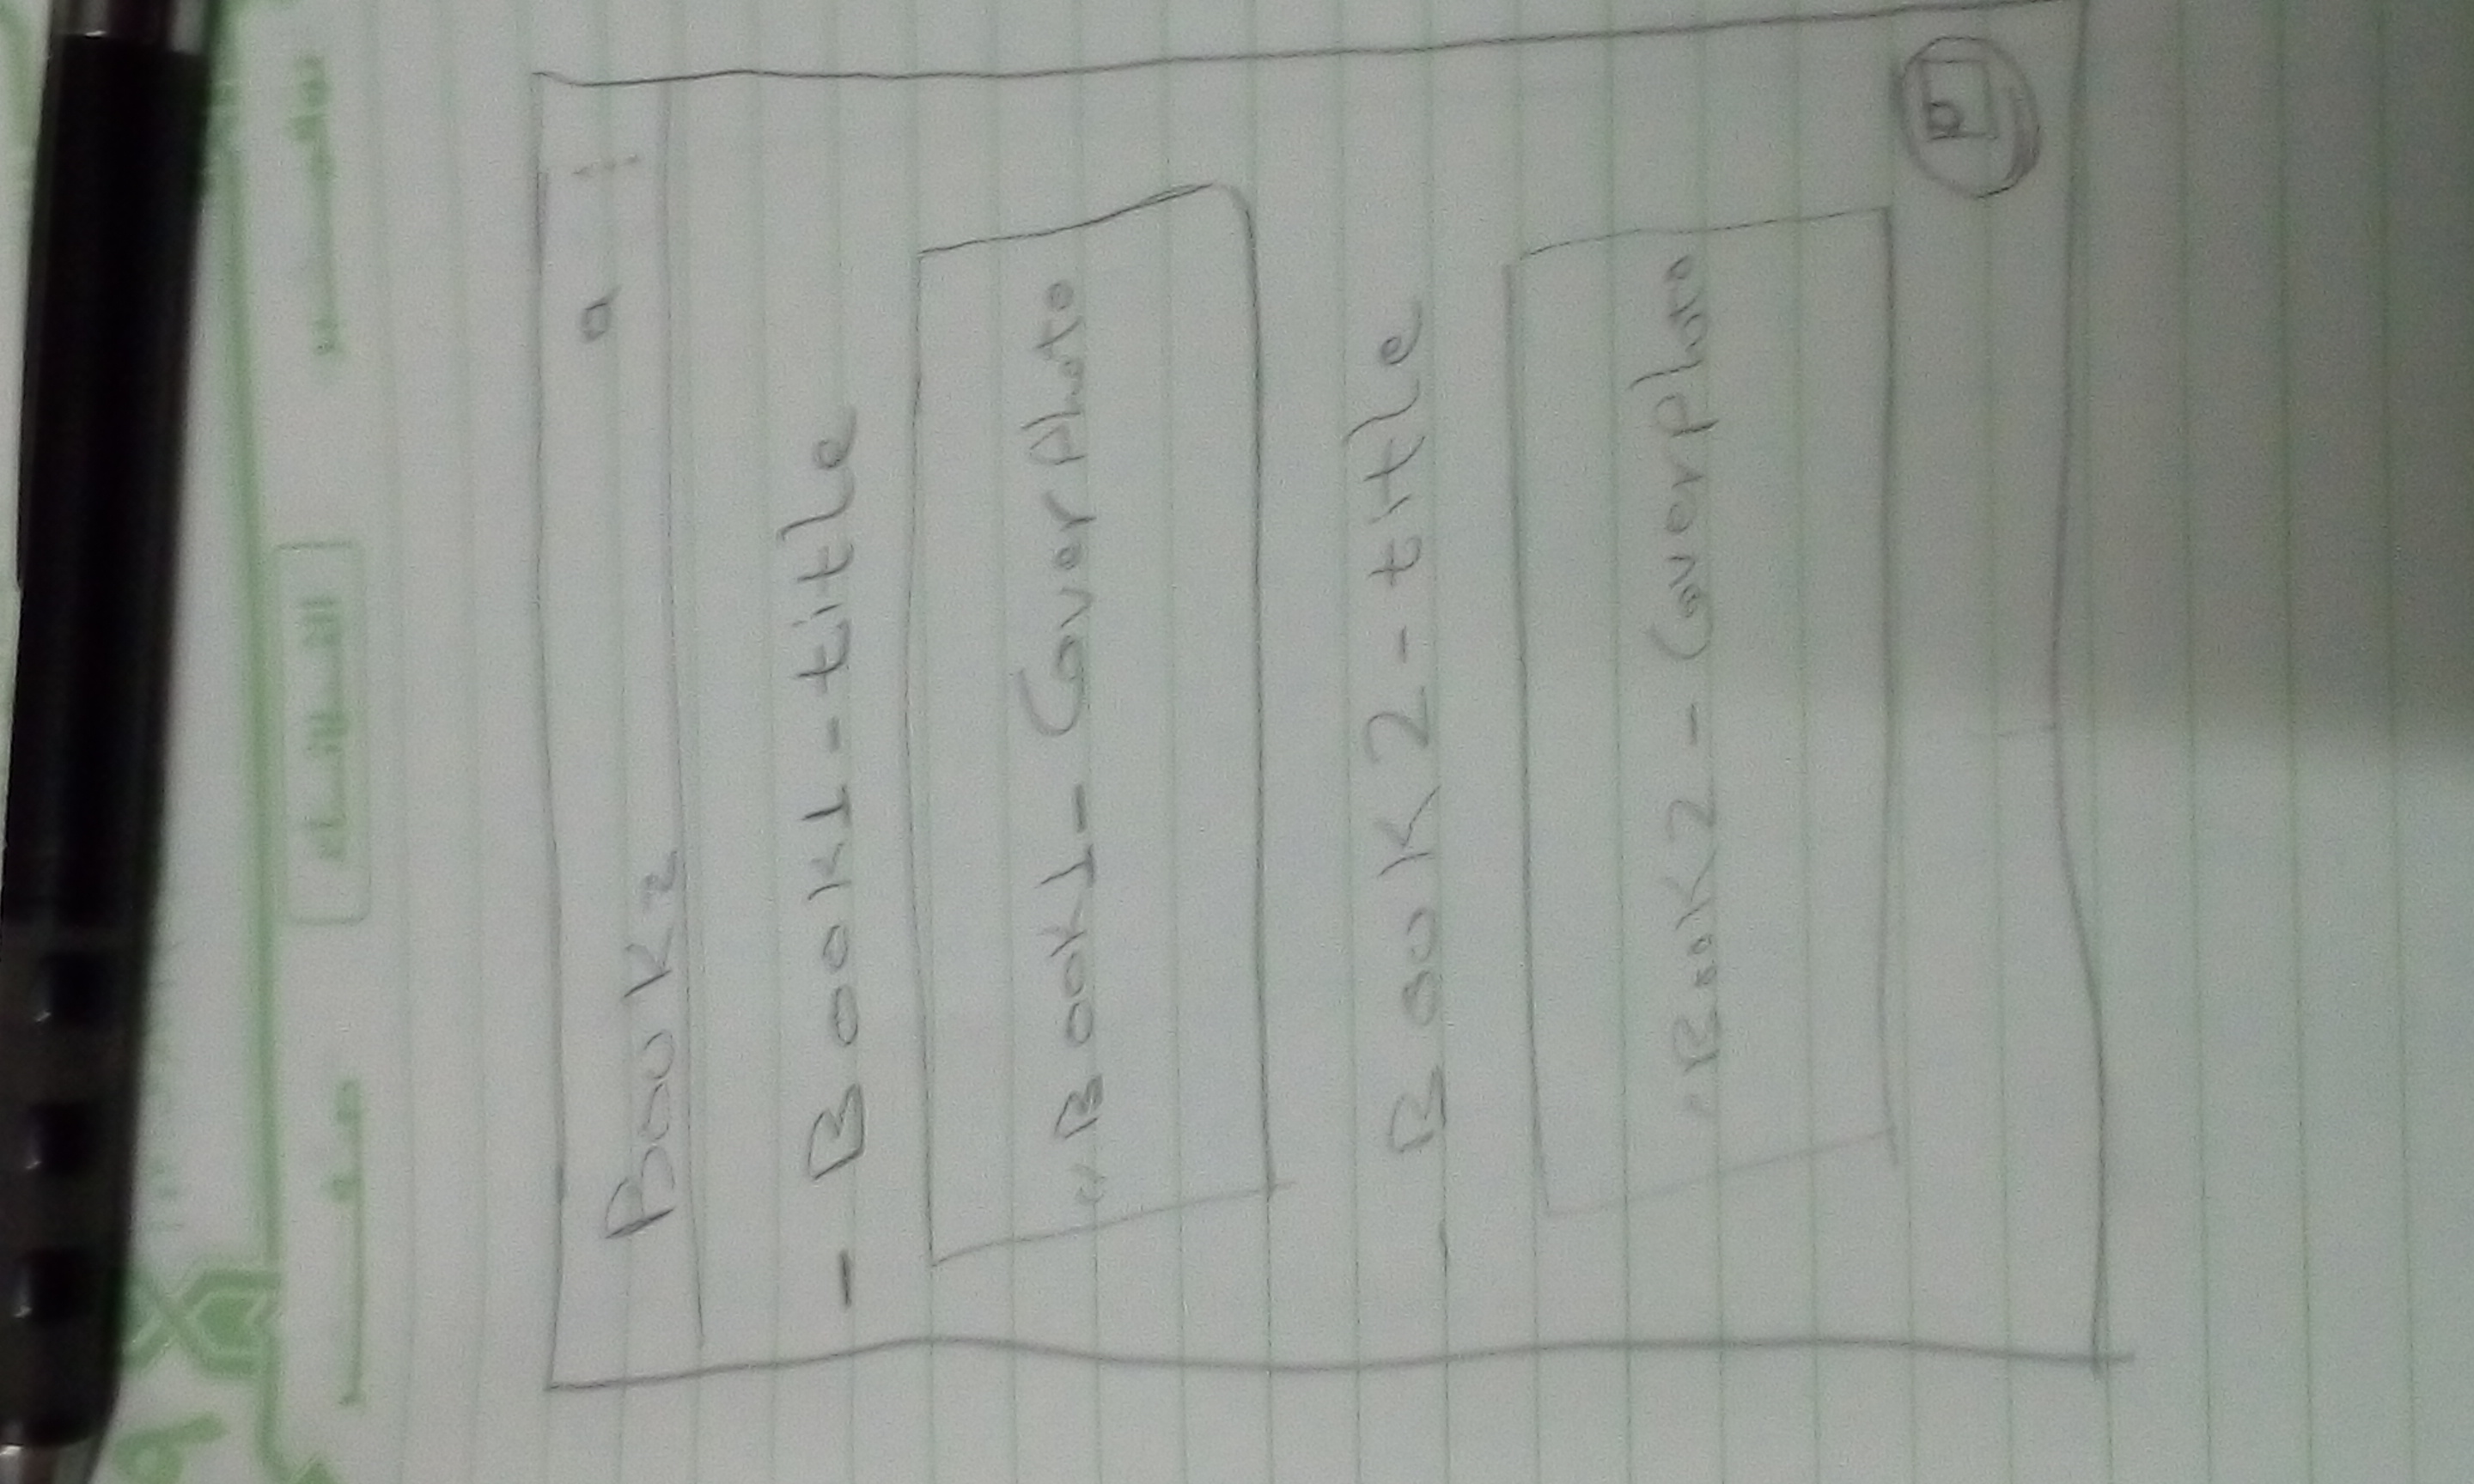 Books
- Book1-title
"Book1-Coverphoto
- Book2-title
"Book2-Coverphoto